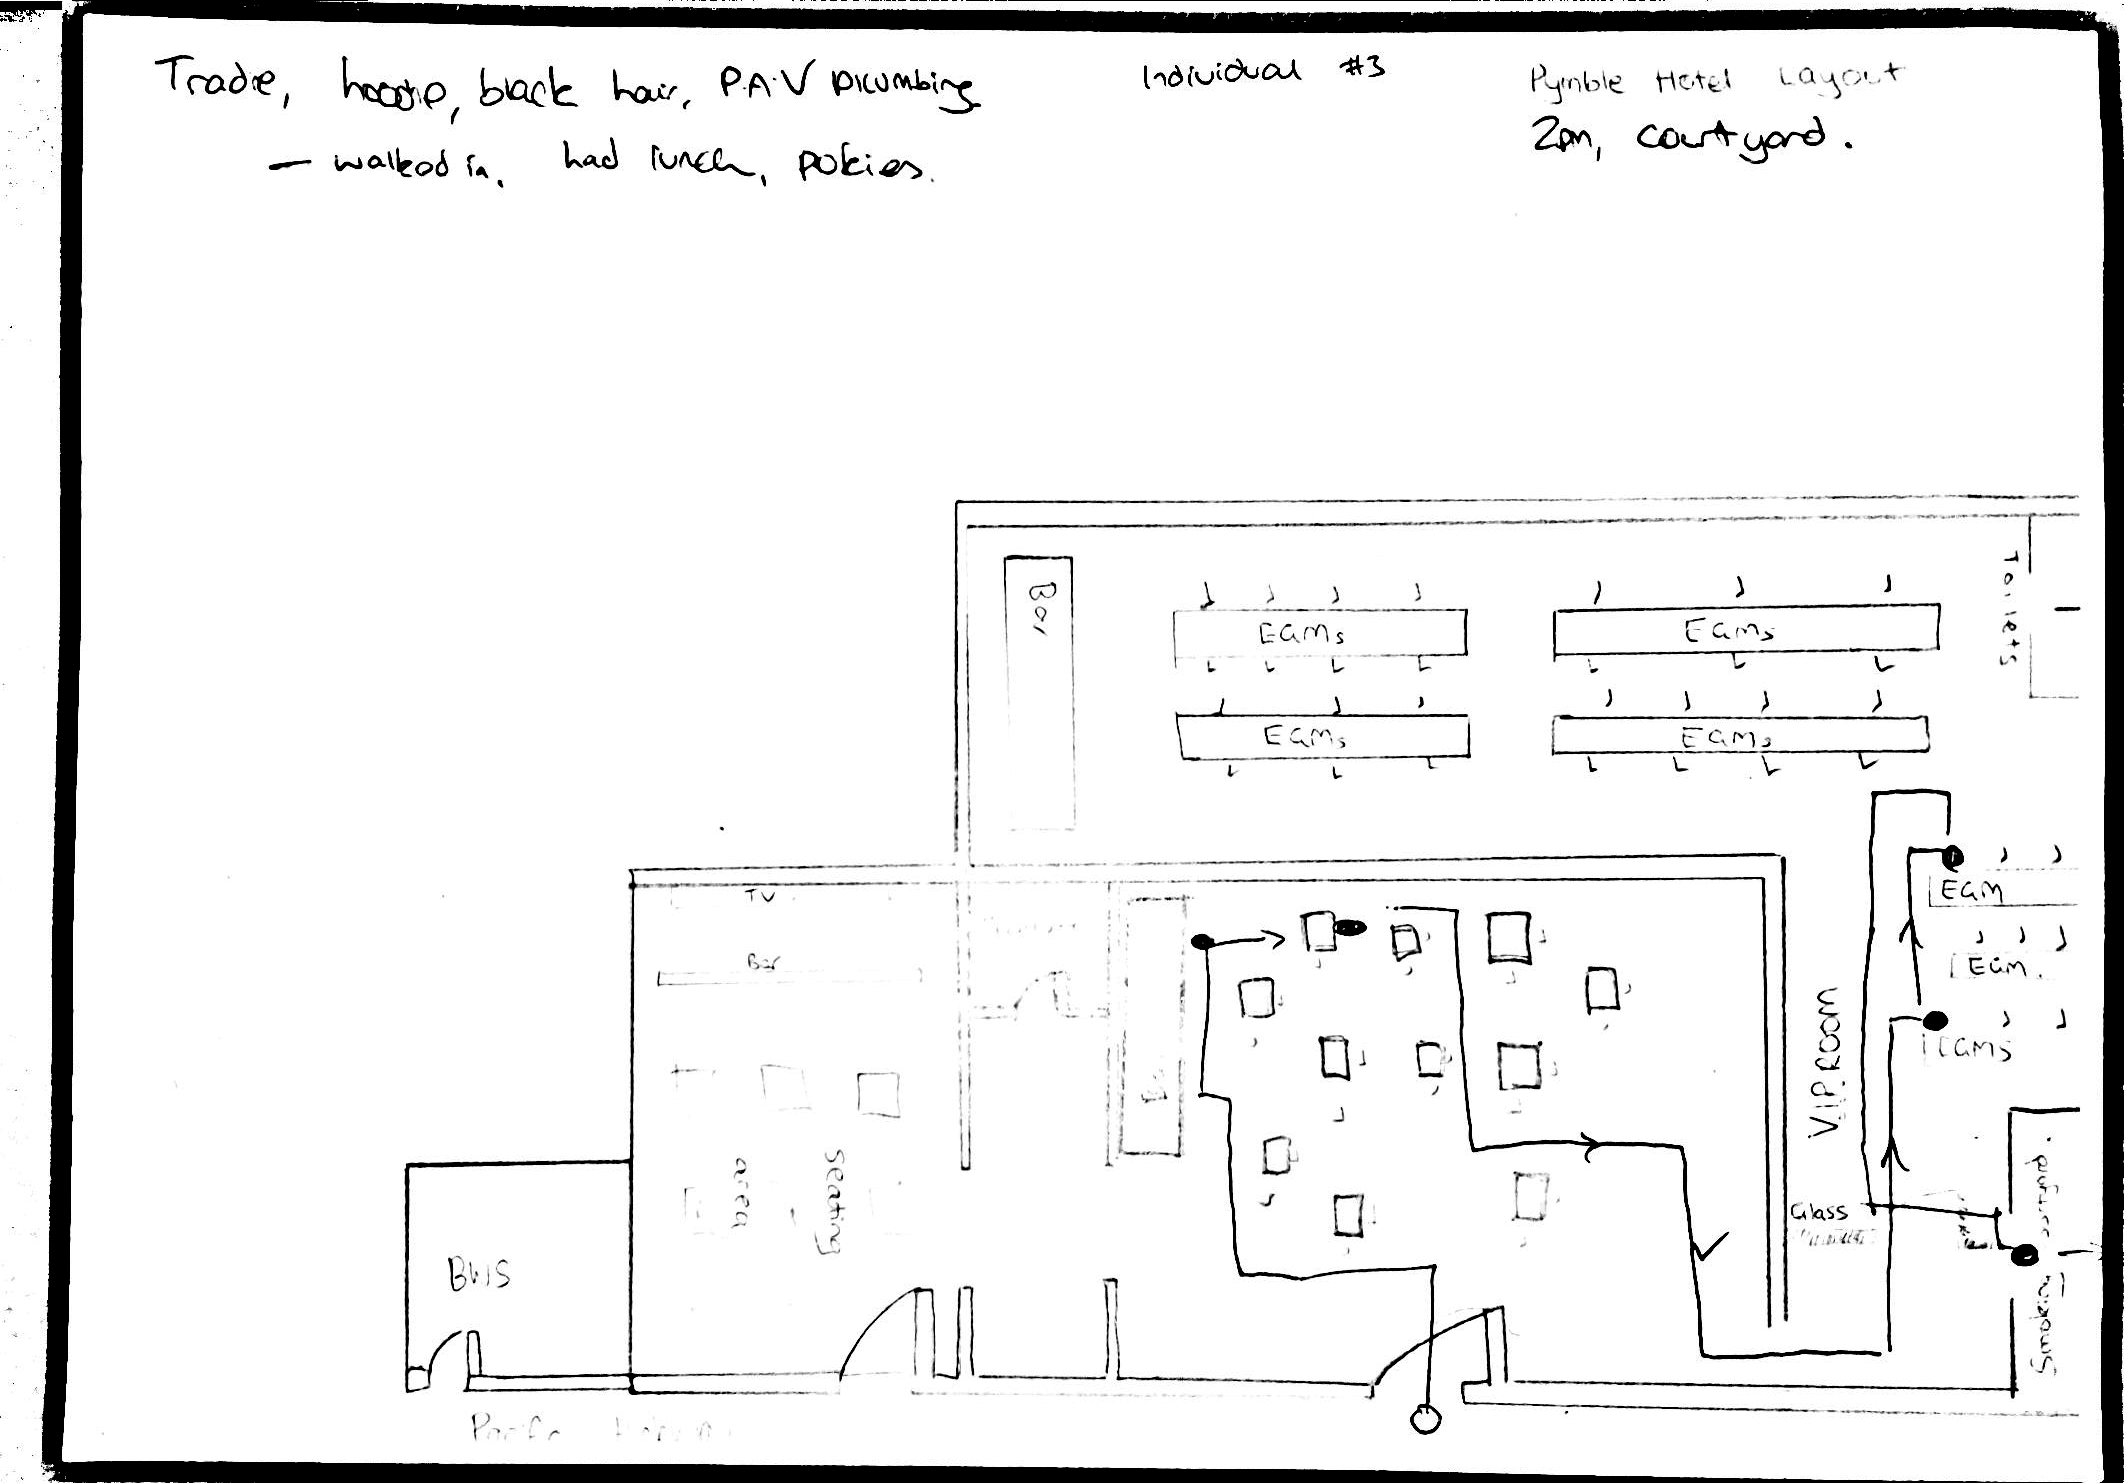 Tradie, hoodie, black hair, P.A.V Plumbing
— walked in, had lunch, pokies.
Individual #3
Pymble Hotel Layout
2pm, courtyard.
Bar
EGMs
EGMs
EGMs
EGMs
Toilets
TV
Bar
seating
area
BWS
EGM
EGM
EGMs
V.I.P. ROOM
Glass
Smoking
Pacific